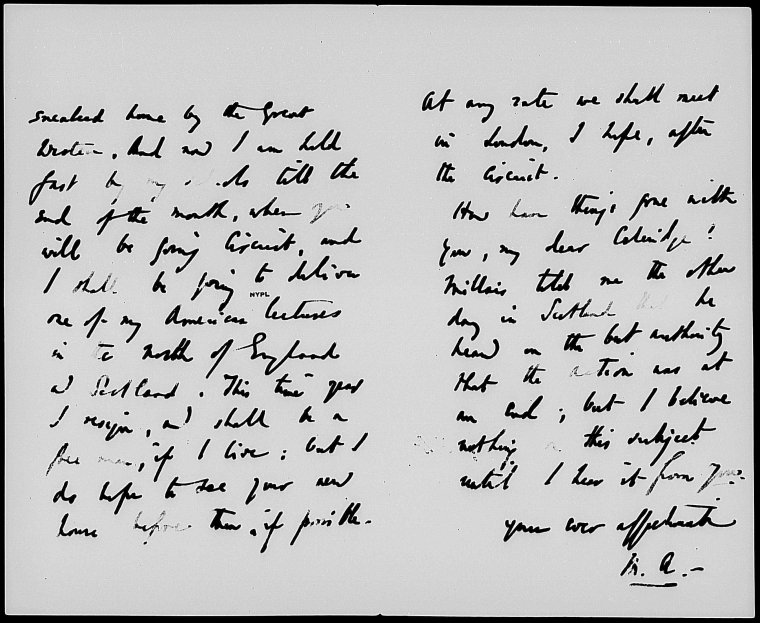 sneaked home by the Great
Western. And now I am held
fast by my schools till the
end of the month, when you
will be going Circuit, and
I shall be going to deliver
NYPL
one of my American lectures
in the north of England
and Scotland. This time year
I resign, and shall be a
free man, if I live: but I
do hope to see your new
house before then, if possible.
At any rate we shall meet
in London, I hope, after
the Circuit.
How have things gone with
you, my dear Coleridge?
Millais told me the other
day in Scotland that he
heard on the best authority
that the action was at
an end; but I believe
nothing on this subject
until I hear it from you.
Yours ever affectionately
M. A.—